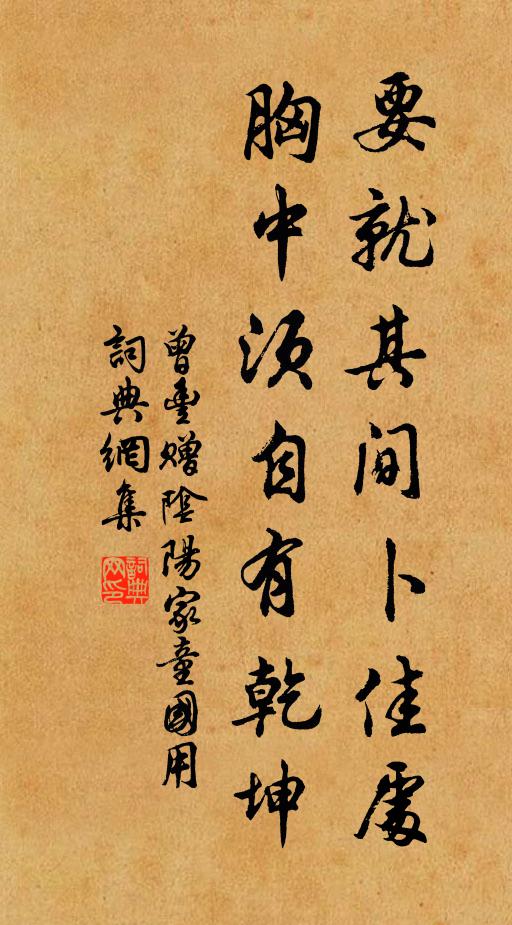 要就其间卜佳處
胸中須自有乾坤
曾豐贈陰陽家童國用
詞典網集
詞典網印